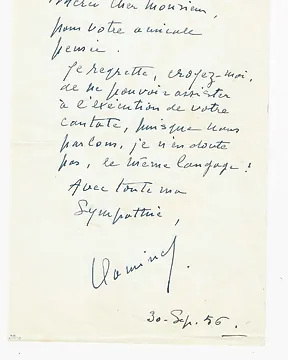 Merci cher Monsieur,
pour votre amicale
pensée.
Je regrette, croyez-moi,
de ne pouvoir assister
à l'exécution de votre
cantate, puisque nous
parlons, je n'en doute
pas, le même langage !
Avec toute ma
Sympathie,
30 - Sep. 56.